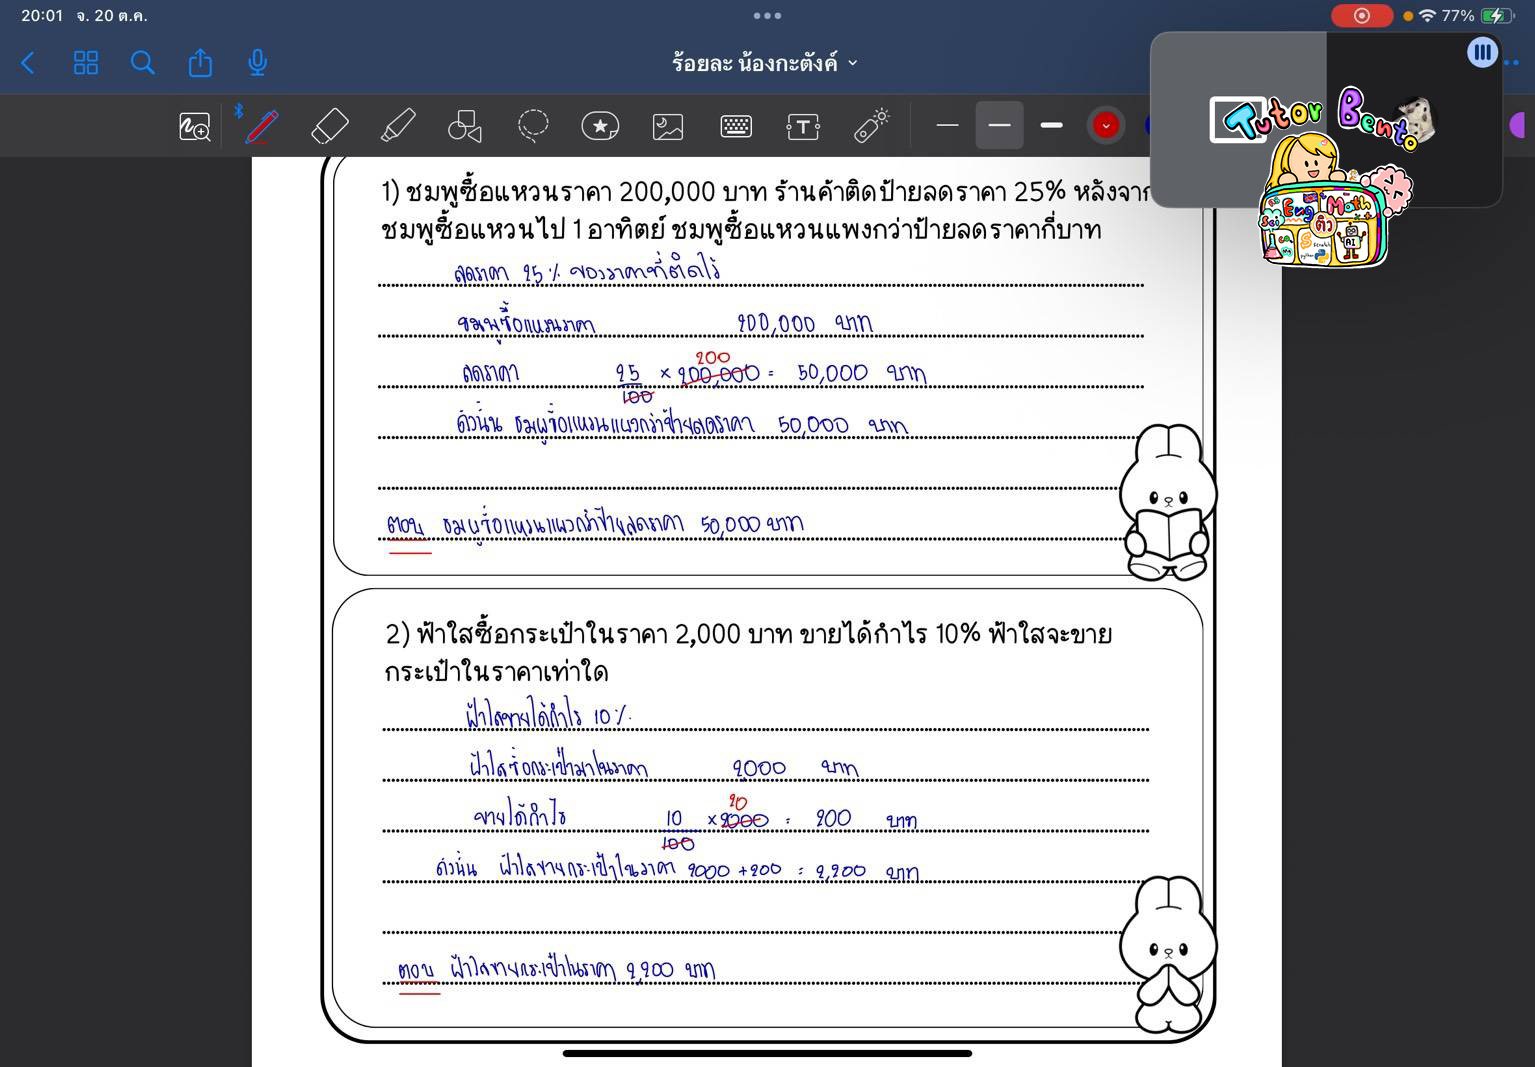 20:01 จ. 20 ต.ค.
77%
ร้อยละ น้องกะตังค์
Tutor Bento
Eng Math
Sci ติว AI
Scratch
python
1) ชมพูซื้อแหวนราคา 200,000 บาท ร้านค้าติดป้ายลดราคา 25% หลังจาก
ชมพูซื้อแหวนไป 1 อาทิตย์ ชมพูซื้อแหวนแพงกว่าป้ายลดราคากี่บาท
ลดราคา 25% ของราคาที่ติดไว้
ชมพูซื้อแหวนราคา 200,000 บาท
200
ลดราคา 25/100 × 200,000 = 50,000 บาท
ดังนั้น ชมพูซื้อแหวนแพงกว่าป้ายลดราคา 50,000 บาท
ตอบ ชมพูซื้อแหวนแพงกว่าป้ายลดราคา 50,000 บาท
2) ฟ้าใสซื้อกระเป๋าในราคา 2,000 บาท ขายได้กำไร 10% ฟ้าใสจะขาย
กระเป๋าในราคาเท่าใด
ฟ้าใสขายได้กำไร 10%
ฟ้าใสซื้อกระเป๋ามาในราคา 2,000 บาท
20
ขายได้กำไร 10/100 × 2000 = 200 บาท
ดังนั้น ฟ้าใสขายกระเป๋าในราคา 2000 + 200 = 2,200 บาท
ตอบ ฟ้าใสขายกระเป๋าในราคา 2,200 บาท